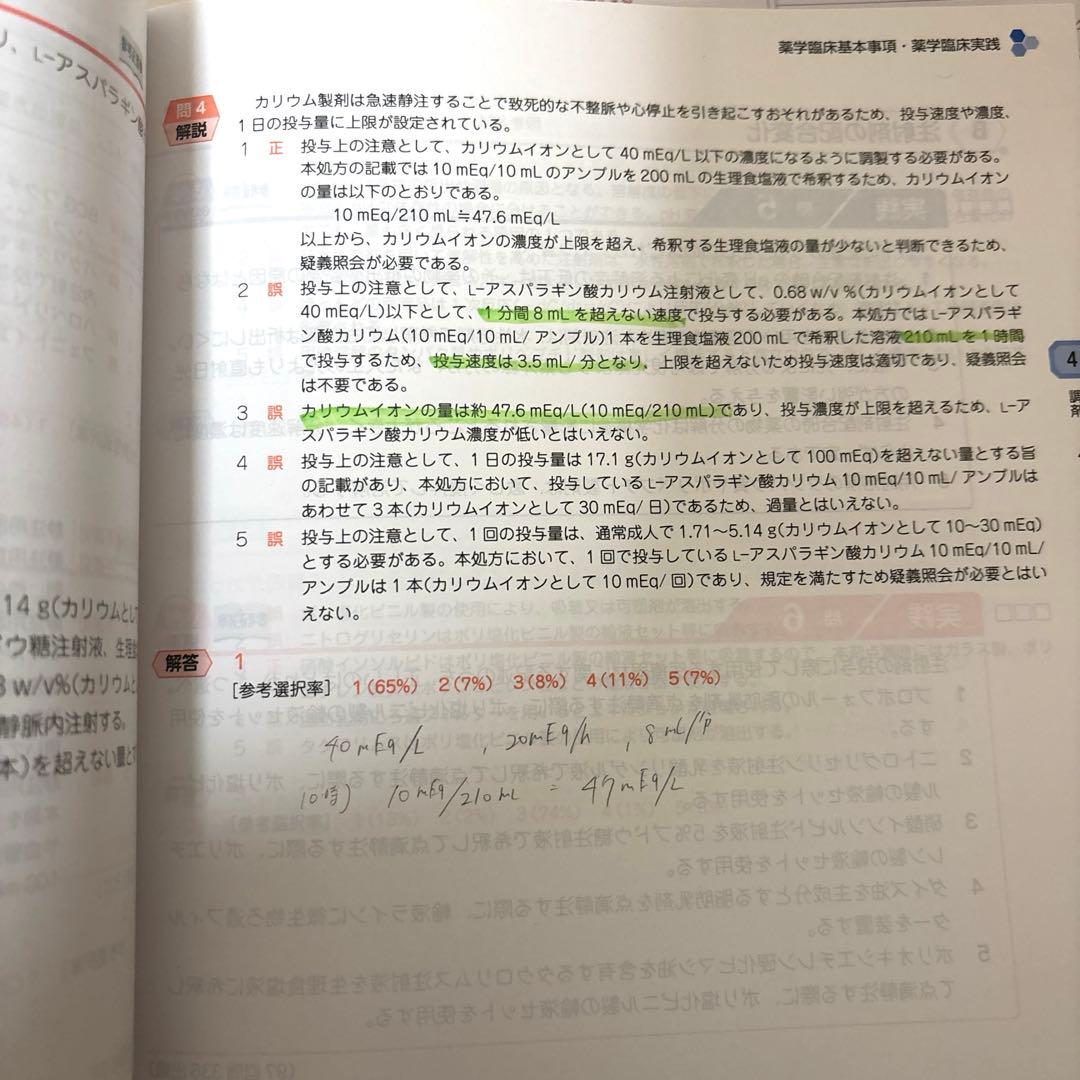 リ、L-アスパラギン
薬学臨床基本事項・薬学臨床実践
問4 解説
カリウム製剤は急速静注することで致死的な不整脈や心停止を引き起こすおそれがあるため、投与速度や濃度、
1日の投与量に上限が設定されている。
1 正 投与上の注意として、カリウムイオンとして 40 mEq/L 以下の濃度になるように調製する必要がある。
本処方の記載では 10 mEq/10 mL のアンプルを 200 mL の生理食塩液で希釈するため、カリウムイオン
の量は以下のとおりである。
10 mEq/210 mL≒47.6 mEq/L
以上から、カリウムイオンの濃度が上限を超え、希釈する生理食塩液の量が少ないと判断できるため、
疑義照会が必要である。
2 誤 投与上の注意として、L-アスパラギン酸カリウム注射液として、0.68 w/v %(カリウムイオンとして
40 mEq/L)以下として、1 分間 8 mL を超えない速度で投与する必要がある。本処方では L-アスパラギ
ン酸カリウム(10 mEq/10 mL/ アンプル)1 本を生理食塩液 200 mL で希釈した溶液 210 mL を 1 時間
で投与するため、投与速度は 3.5 mL/ 分となり、上限を超えないため投与速度は適切であり、疑義照会
は不要である。
3 誤 カリウムイオンの量は約 47.6 mEq/L(10 mEq/210 mL)であり、投与濃度が上限を超えるため、L-ア
スパラギン酸カリウム濃度が低いとはいえない。
4 誤 投与上の注意として、1 日の投与量は 17.1 g(カリウムイオンとして 100 mEq)を超えない量とする旨
の記載があり、本処方において、投与している L-アスパラギン酸カリウム 10 mEq/10 mL/ アンプルは
あわせて 3 本(カリウムイオンとして 30 mEq/ 日)であるため、過量とはいえない。
5 誤 投与上の注意として、1 回の投与量は、通常成人で 1.71〜5.14 g(カリウムイオンとして 10〜30 mEq)
とする必要がある。本処方において、1 回で投与している L-アスパラギン酸カリウム 10 mEq/10 mL/
アンプルは 1 本(カリウムイオンとして 10 mEq/ 回)であり、規定を満たすため疑義照会が必要とはい
えない。
解答 1
[参考選択率] 1(65%) 2(7%) 3(8%) 4(11%) 5(7%)
40mEq/L , 20mEq/h , 8mL/
10時) 10mEq/210mL = 47mEq/L
4
調
剤
.14 g(カリウムとし
ウ糖注射液、生理
w/v%(カリウムと
静脈内注射する。
本)を超えない量と